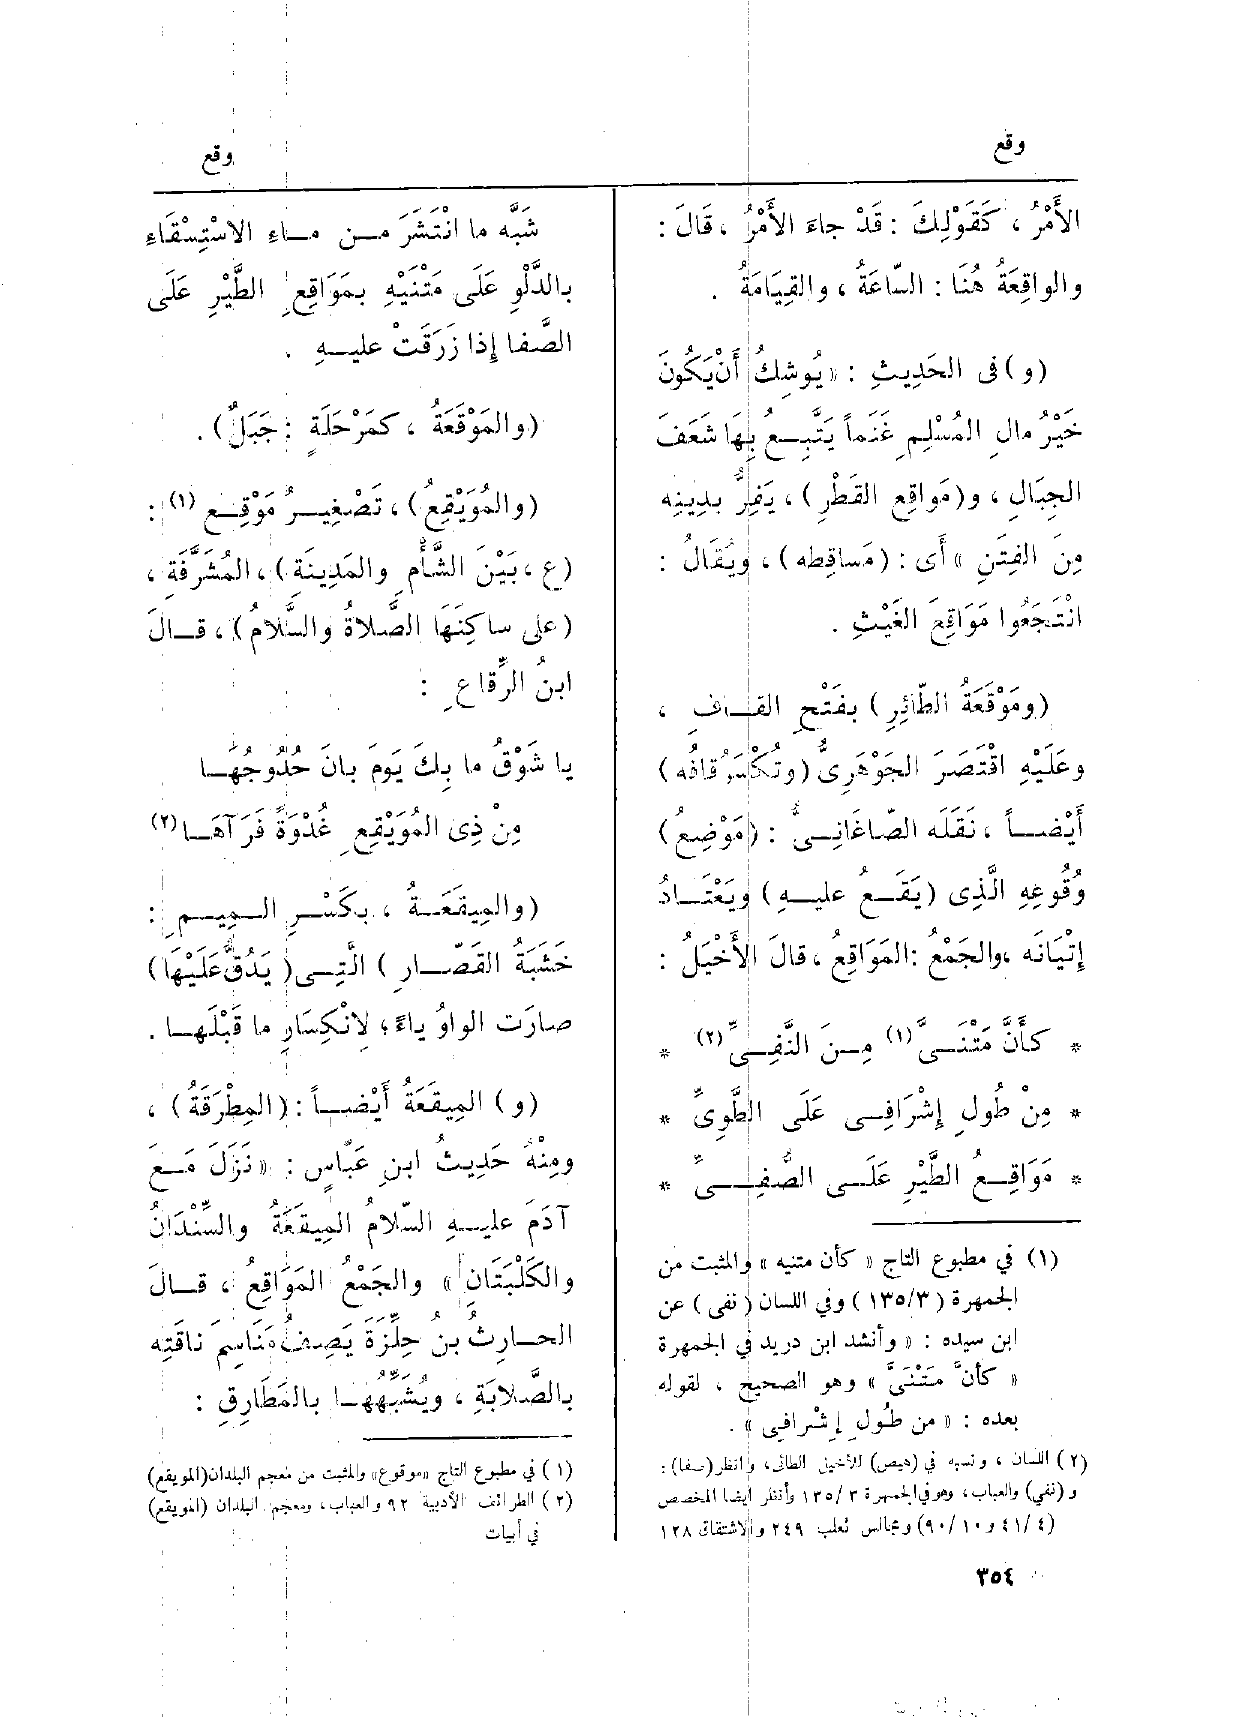 وقع
وقع
الأَمْرُ ، كَقَوْلِكَ : قَدْ جاءَ الأَمْرُ ، قَالَ :
والواقِعَةُ هُنَا : السّاعَةُ ، والقِيَامَةُ .
(و) فى الحَدِيثِ : «يُوشِكُ أَنْ يَكُونَ
خَيْرُ مالِ المُسْلِمِ غَنَماً يَتَّبِعُ بِهَا شَعَفَ
الجِبَالِ ، و(مَواقِعِ القَطْرِ) ، يَفِرُّ بدِينِه
مِنَ الفِتَنِ » أَى : (مَساقِطِه) ، ويُقَالُ :
انْتَجَعُوا مَوَاقِعَ الغَيْثِ .
(ومَوْقَعَةُ الطّائِرِ) بفَتْحِ القَافِ ،
وعَلَيْهِ اقْتَصَرَ الجَوْهَرِىُّ (وتُكْسَرُ قافُه)
أَيْضاً ، نَقَلَه الصّاغَانِىُّ : (مَوْضِعُ)
وُقُوعِهِ الَّذِى (يَقَعُ عليهِ) ويَعْتَادُ
إِتْيَانَه ، والجَمْعُ : المَوَاقِعُ ، قالَ الأَخْيَلُ :
* كأَنَّ مَتْنَىَّ (١) مِنَ النَّفِىِّ (٢) *
* مِنْ طُولِ إِشْرَافِى عَلَى الطَّوِىِّ *
* مَوَاقِعُ الطَّيْرِ عَلَى الصُّفِىِّ *
(١) في مطبوع التاج « كأن متنيه » والمثبت من
الجمهرة (١٣٥/٣) وفي اللسان ( نفى ) عن
ابن سيده : « وأنشد ابن دريد في الجمهرة
« كأنَّ مَتْنَىَّ » وهو الصحيح ، لقوله
بعده : « من طُولِ إشْرافِى » .
(٢) اللسان ، ونسبه في (هيص) للأخيل الطائى، وانظر (صفا) :
و (نفي) والعباب، وهو في الجمهرة ١٣٥/٣ وأنظر أيضا المخصص
(٤١/٤ و ٩٠/١٠) ومجالس ثعلب ٢٤٩ والاشتقاق ١٢٨
شَبَّه ما انْتَشَرَ مِن ماءِ الاسْتِسْقَاءِ
بالدَّلْوِ عَلَى مَتْنَيْهِ بمَوَاقِعِ الطَّيْرِ عَلَى
الصَّفا إِذا زَرَقَتْ عليهِ .
(والمَوْقَعَةُ ، كمَرْحَلَةٍ : جَبَلٌ) .
(والمُوَيْقِعُ) ، تَصْغِيرُ مَوْقِعٍ (١) :
(ع ، بَيْنَ الشَّأْمِ والمَدِينَةِ) ، المُشَرَّفَةِ ،
(على ساكِنِهَا الصَّلاةُ والسَّلامُ) ، قالَ
ابنُ الرِّقاعِ :
يا شَوْقُ ما بِكَ يَومَ بانَ حُدُوجُهَا
مِنْ ذِى المُوَيْقِعِ غُدْوَةً فَرَآهَا (٢)
(والمِيقَعَةُ ، بكَسْرِ المِيمِ :
خَشَبَةُ القَصّارِ ) الَّتِى ( يَدُقُّ عَلَيْهَا)
صارَت الواوُ ياءً ؛ لِانْكِسَارِ ما قَبْلَها .
(و) المِيقَعَةُ أَيْضاً : (المِطْرَقَةُ) ،
ومِنْهُ حَدِيثُ ابنِ عَبّاسٍ : «نَزَلَ مَعَ
آدَمَ عليهِ السّلامُ المِيقَعَةُ والسِّنْدَانُ
والكَلْبَتَانِ» والجَمْعُ المَوَاقِعُ ، قالَ
الحارِثُ بن حِلِّزَةَ يَصِفُ مَنَاسِمَ ناقَتِه
بالصَّلابَةِ ، ويُشَبِّهُها بالمَطَارِقِ :
(١) في مطبوع التاج «موقوع» والمثبت من معجم البلدان(المويقع)
(٢) الطرائف الأدبية ٩٢ والعباب، ومعجم البلدان (المويقع)
في أبيات
٣٥٤